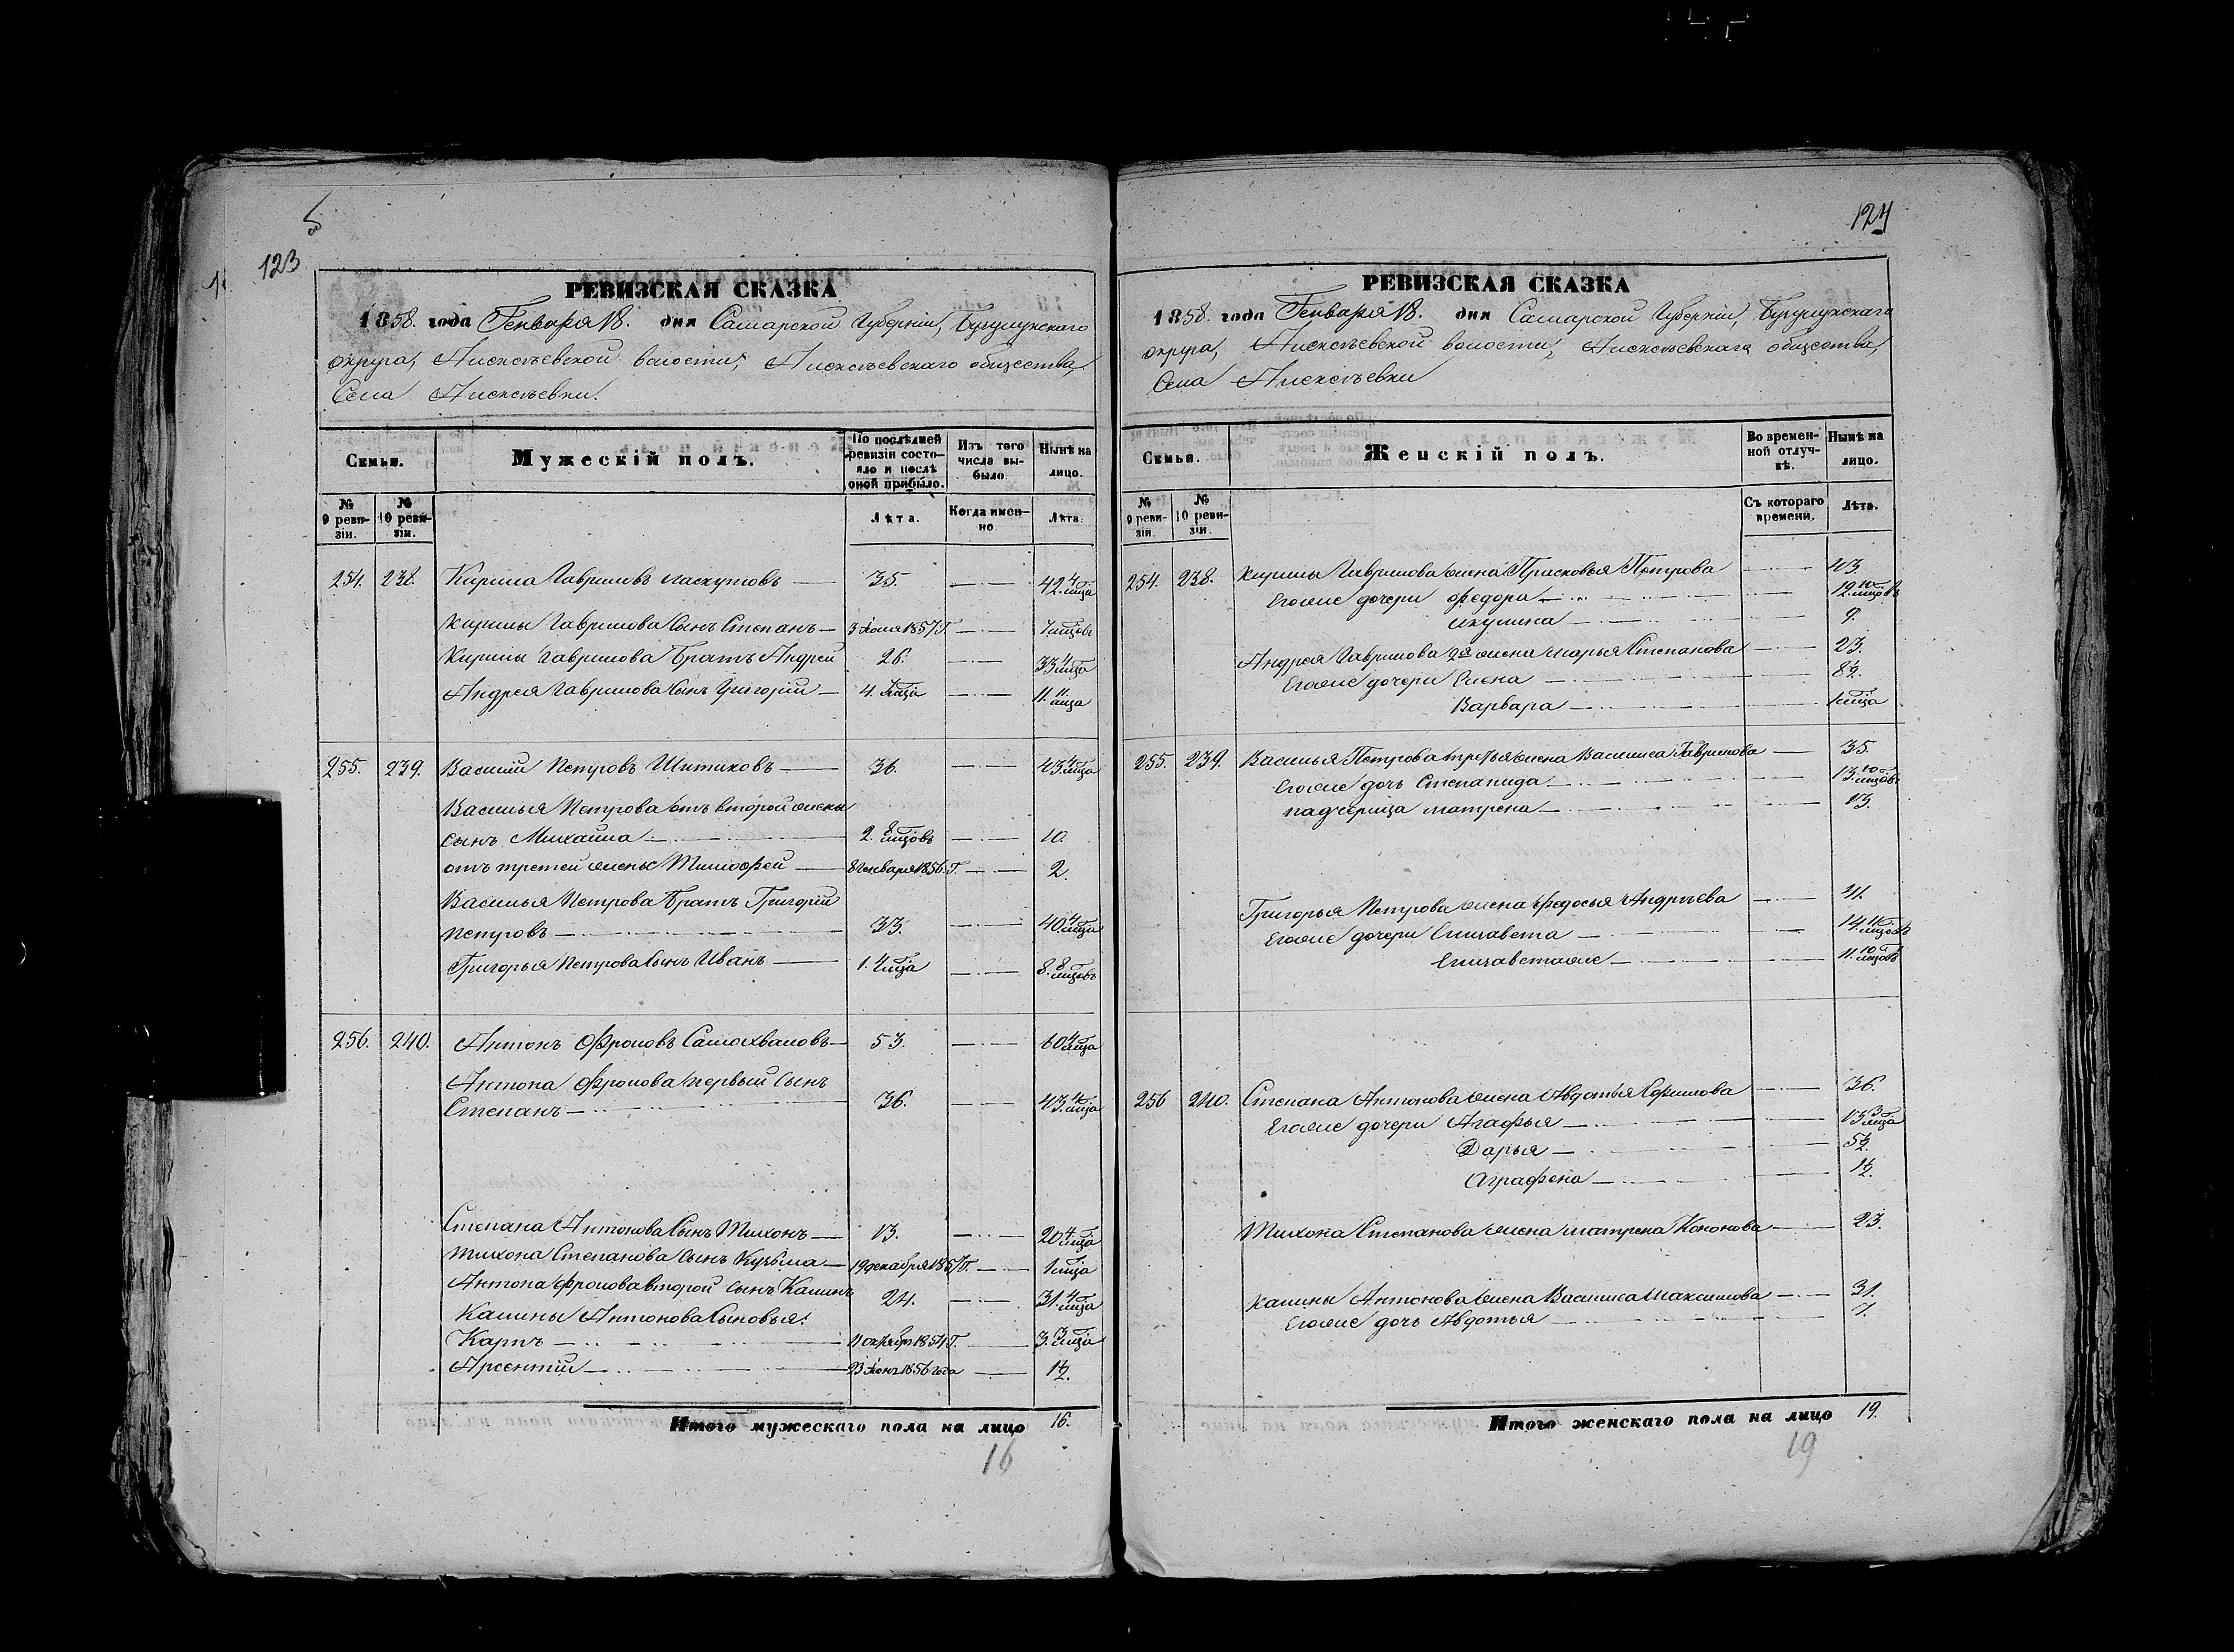 5
123
РЕВИЗСКАЯ СКАЗКА
1858. года Генваря 18. дня Самарской Губерніи, Бугурусланского
округа, Алексѣевской волости, Алексѣевскаго общества,
Села Алексѣевки.
Семьи.
Мужескій полъ.
По послѣдней ревизіи состояло и послѣ оной прибыло.
Изъ того числа выбыло.
Нынѣ на лицо.
№ 9 ревизіи.
№ 10 ревизіи.
Лѣта.
Когда именно.
Лѣта.
254. 238. Кирила Гавриловъ 35. 42. 4 мѣца
Кирилы Гаврилова Сынъ Степанъ 3 1857 Г. 7 мѣцовъ
Кирилы Гаврилова Братъ Андрей 26. 33 4 мѣца
Андрея Гаврилова Сынъ Григорій 4. 11. 11 мѣца
255. 239. Василій Петровъ Шитиковъ 36. 43 4 мѣца
Василья Петрова отъ второй жены
сынъ Михайла 2. 8 мѣцовъ 10.
отъ третей жены Тимофей 8 Генваря 1856. Г. 2.
Василья Петрова Братъ Григорій
Петровъ 33. 40 4 мѣца
Григорья Петрова Сынъ Иванъ 1. 4 мѣца 8. 8 мѣцовъ
256. 240. Антонъ Фроловъ Самохваловъ 53. 60 4 мѣца
Антона Фролова первый Сынъ
Степанъ 36. 43 4 мѣца
Степана Антонова Сынъ Тихонъ 13. 20 4 мѣца
Тихона Степанова Сынъ Кузьма 19 декабря 1857 Г. 1 мѣца
Антона Фролова второй сынъ Калинъ 24. 31. 4 мѣца
Калины Антонова Сыновья:
Карпъ октября 1854 Г. 3. 3 мѣца
Арсентій 23 1856 года 1½.
Итого мужескаго пола на лицо 16.
16
124
РЕВИЗСКАЯ СКАЗКА
1858. года Генваря 18. дня Самарской Губерніи, Бугурусланскаго
округа, Алексѣевской волости, Алексѣевскаго общества,
Села Алексѣевки
Семьи.
Женскій полъ.
Во временной отлучкѣ.
Нынѣ на лицо.
№ 9 ревизіи.
№ 10 ревизіи.
Съ котораго времени.
Лѣта.
254. 238. Кирилы Гаврилова жена Прасковья Петрова 43.
Егоже дочери Федора 12. 10 мѣцовъ
Акулина 9.
Андрея Гаврилова 2я жена Марья Степанова 23.
Егоже дочери Елена 8½.
Варвара 1 мѣца
255. 239. Василья Петрова третья жена Василиса Гаврилова 35.
Егоже дочь Степанида 13. 10 мѣцовъ
падчерица Матрена 13.
Григорья Петрова жена Федосья Андрѣева 41.
Егоже дочери Елизавета 14. 11 мѣцовъ
Елизаветаже 11. 10 мѣцовъ
256 240. Степана Антонова жена Авдотья Ефимова 36.
Егоже дочери Агафья 13 3 мѣца
Дарья 5½.
Аграфена 1½.
Тихона Степанова жена Матрена Кононова 23.
Калины Антонова жена Василиса Максимова 31.
Егоже дочь Авдотья 7.
Итого женскаго пола на лицо 19.
19